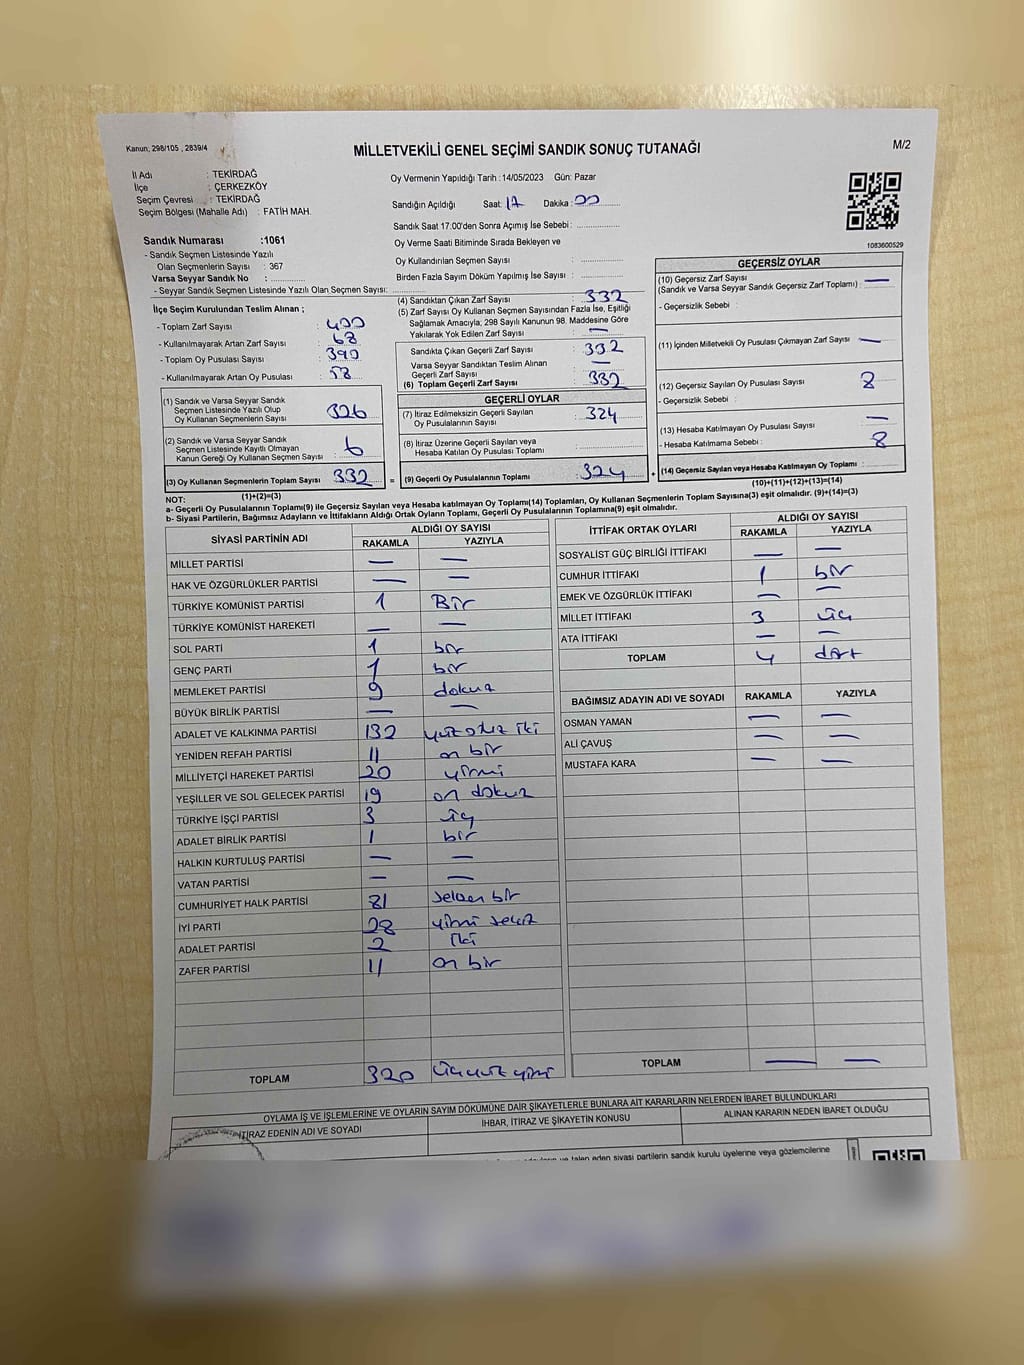 Kanun; 298/105 , 2839/4
MİLLETVEKİLİ GENEL SEÇİMİ SANDIK SONUÇ TUTANAĞI
M/2
İl Adı : TEKİRDAĞ
İlçe : ÇERKEZKÖY
Seçim Çevresi : TEKİRDAĞ
Seçim Bölgesi (Mahalle Adı) : FATİH MAH.
Oy Vermenin Yapıldığı Tarih :14/05/2023 Gün: Pazar
Sandığın Açıldığı Saat: 17 Dakika: 00
Sandık Saat 17:00'den Sonra Açımış İse Sebebi :
1083600529
Sandık Numarası :1061
- Sandık Seçmen Listesinde Yazılı
Olan Seçmenlerin Sayısı : 367
Varsa Seyyar Sandık No :
- Seyyar Sandık Seçmen Listesinde Yazılı Olan Seçmen Sayısı:
Oy Verme Saati Bitiminde Sırada Bekleyen ve
Oy Kullandırılan Seçmen Sayısı :
Birden Fazla Sayım Döküm Yapılmış İse Sayısı :
İlçe Seçim Kurulundan Teslim Alınan ;
- Toplam Zarf Sayısı : 400
- Kullanılmayarak Artan Zarf Sayısı : 68
- Toplam Oy Pusulası Sayısı : 390
- Kullanılmayarak Artan Oy Pusulası : 58
(1) Sandık ve Varsa Seyyar Sandık
Seçmen Listesinde Yazılı Olup
Oy Kullanan Seçmenlerin Sayısı : 326
(2) Sandık ve Varsa Seyyar Sandık
Seçmen Listesinde Kayıtlı Olmayan
Kanun Gereği Oy Kullanan Seçmen Sayısı : 6
(3) Oy Kullanan Seçmenlerin Toplam Sayısı : 332
(1)+(2)=(3)
(4) Sandıktan Çıkan Zarf Sayısı : 332
(5) Zarf Sayısı Oy Kullanan Seçmen Sayısından Fazla İse, Eşitliği
Sağlamak Amacıyla; 298 Sayılı Kanunun 98. Maddesine Göre
Yakılarak Yok Edilen Zarf Sayısı : —
Sandıkta Çıkan Geçerli Zarf Sayısı : 332
Varsa Seyyar Sandıktan Teslim Alınan
Geçerli Zarf Sayısı : —
(6) Toplam Geçerli Zarf Sayısı : 332
GEÇERLİ OYLAR
(7) İtiraz Edilmeksizin Geçerli Sayılan
Oy Pusulalarının Sayısı : 324
(8) İtiraz Üzerine Geçerli Sayılan veya
Hesaba Katılan Oy Pusulası Toplamı :
= (9) Geçerli Oy Pusulalarının Toplamı : 324 +
GEÇERSİZ OYLAR
(10) Geçersiz Zarf Sayısı
(Sandık ve Varsa Seyyar Sandık Geçersiz Zarf Toplamı) : —
- Geçersizlik Sebebi :
(11) İçinden Milletvekili Oy Pusulası Çıkmayan Zarf Sayısı : —
(12) Geçersiz Sayılan Oy Pusulası Sayısı : 8
- Geçersizlik Sebebi :
(13) Hesaba Katılmayan Oy Pusulası Sayısı : —
- Hesaba Katılmama Sebebi : 8
(14) Geçersiz Sayılan veya Hesaba Katılmayan Oy Toplamı :
(10)+(11)+(12)+(13)=(14)
NOT:
a- Geçerli Oy Pusulalarının Toplamı(9) ile Geçersiz Sayılan veya Hesaba katılmayan Oy Toplamı(14) Toplamları, Oy Kullanan Seçmenlerin Toplam Sayısına(3) eşit olmalıdır. (9)+(14)=(3)
b- Siyasi Partilerin, Bağımsız Adayların ve İttifakların Aldığı Ortak Oyların Toplamı, Geçerli Oy Pusulalarının Toplamına(9) eşit olmalıdır.
SİYASİ PARTİNİN ADI ALDIĞI OY SAYISI
RAKAMLA YAZIYLA
MİLLET PARTİSİ — —
HAK VE ÖZGÜRLÜKLER PARTİSİ — —
TÜRKİYE KOMÜNİST PARTİSİ 1 Bir
TÜRKİYE KOMÜNİST HAREKETİ — —
SOL PARTİ 1 bir
GENÇ PARTİ 1 bir
MEMLEKET PARTİSİ 9 dokuz
BÜYÜK BİRLİK PARTİSİ — —
ADALET VE KALKINMA PARTİSİ 132 yüz otuz iki
YENİDEN REFAH PARTİSİ 11 on bir
MİLLİYETÇİ HAREKET PARTİSİ 20 yirmi
YEŞİLLER VE SOL GELECEK PARTİSİ 19 on dokuz
TÜRKİYE İŞÇİ PARTİSİ 3 üç
ADALET BİRLİK PARTİSİ 1 bir
HALKIN KURTULUŞ PARTİSİ — —
VATAN PARTİSİ — —
CUMHURİYET HALK PARTİSİ 81 seksen bir
İYİ PARTİ 28 yirmi sekiz
ADALET PARTİSİ 2 iki
ZAFER PARTİSİ 11 on bir
TOPLAM 320 üçyüz yirmi
İTTİFAK ORTAK OYLARI ALDIĞI OY SAYISI
RAKAMLA YAZIYLA
SOSYALİST GÜÇ BİRLİĞİ İTTİFAKI — —
CUMHUR İTTİFAKI 1 bir
EMEK VE ÖZGÜRLÜK İTTİFAKI — —
MİLLET İTTİFAKI 3 üç
ATA İTTİFAKI — —
TOPLAM 4 dört
BAĞIMSIZ ADAYIN ADI VE SOYADI RAKAMLA YAZIYLA
OSMAN YAMAN — —
ALİ ÇAVUŞ — —
MUSTAFA KARA — —
TOPLAM — —
OYLAMA İŞ VE İŞLEMLERİNE VE OYLARIN SAYIM DÖKÜMÜNE DAİR ŞİKAYETLERLE BUNLARA AİT KARARLARIN NELERDEN İBARET BULUNDUKLARI
İTİRAZ EDENİN ADI VE SOYADI İHBAR, İTİRAZ VE ŞİKAYETİN KONUSU ALINAN KARARIN NEDEN İBARET OLDUĞU
ve talep eden siyasi partilerin sandık kurulu üyelerine veya gözlemcilerine